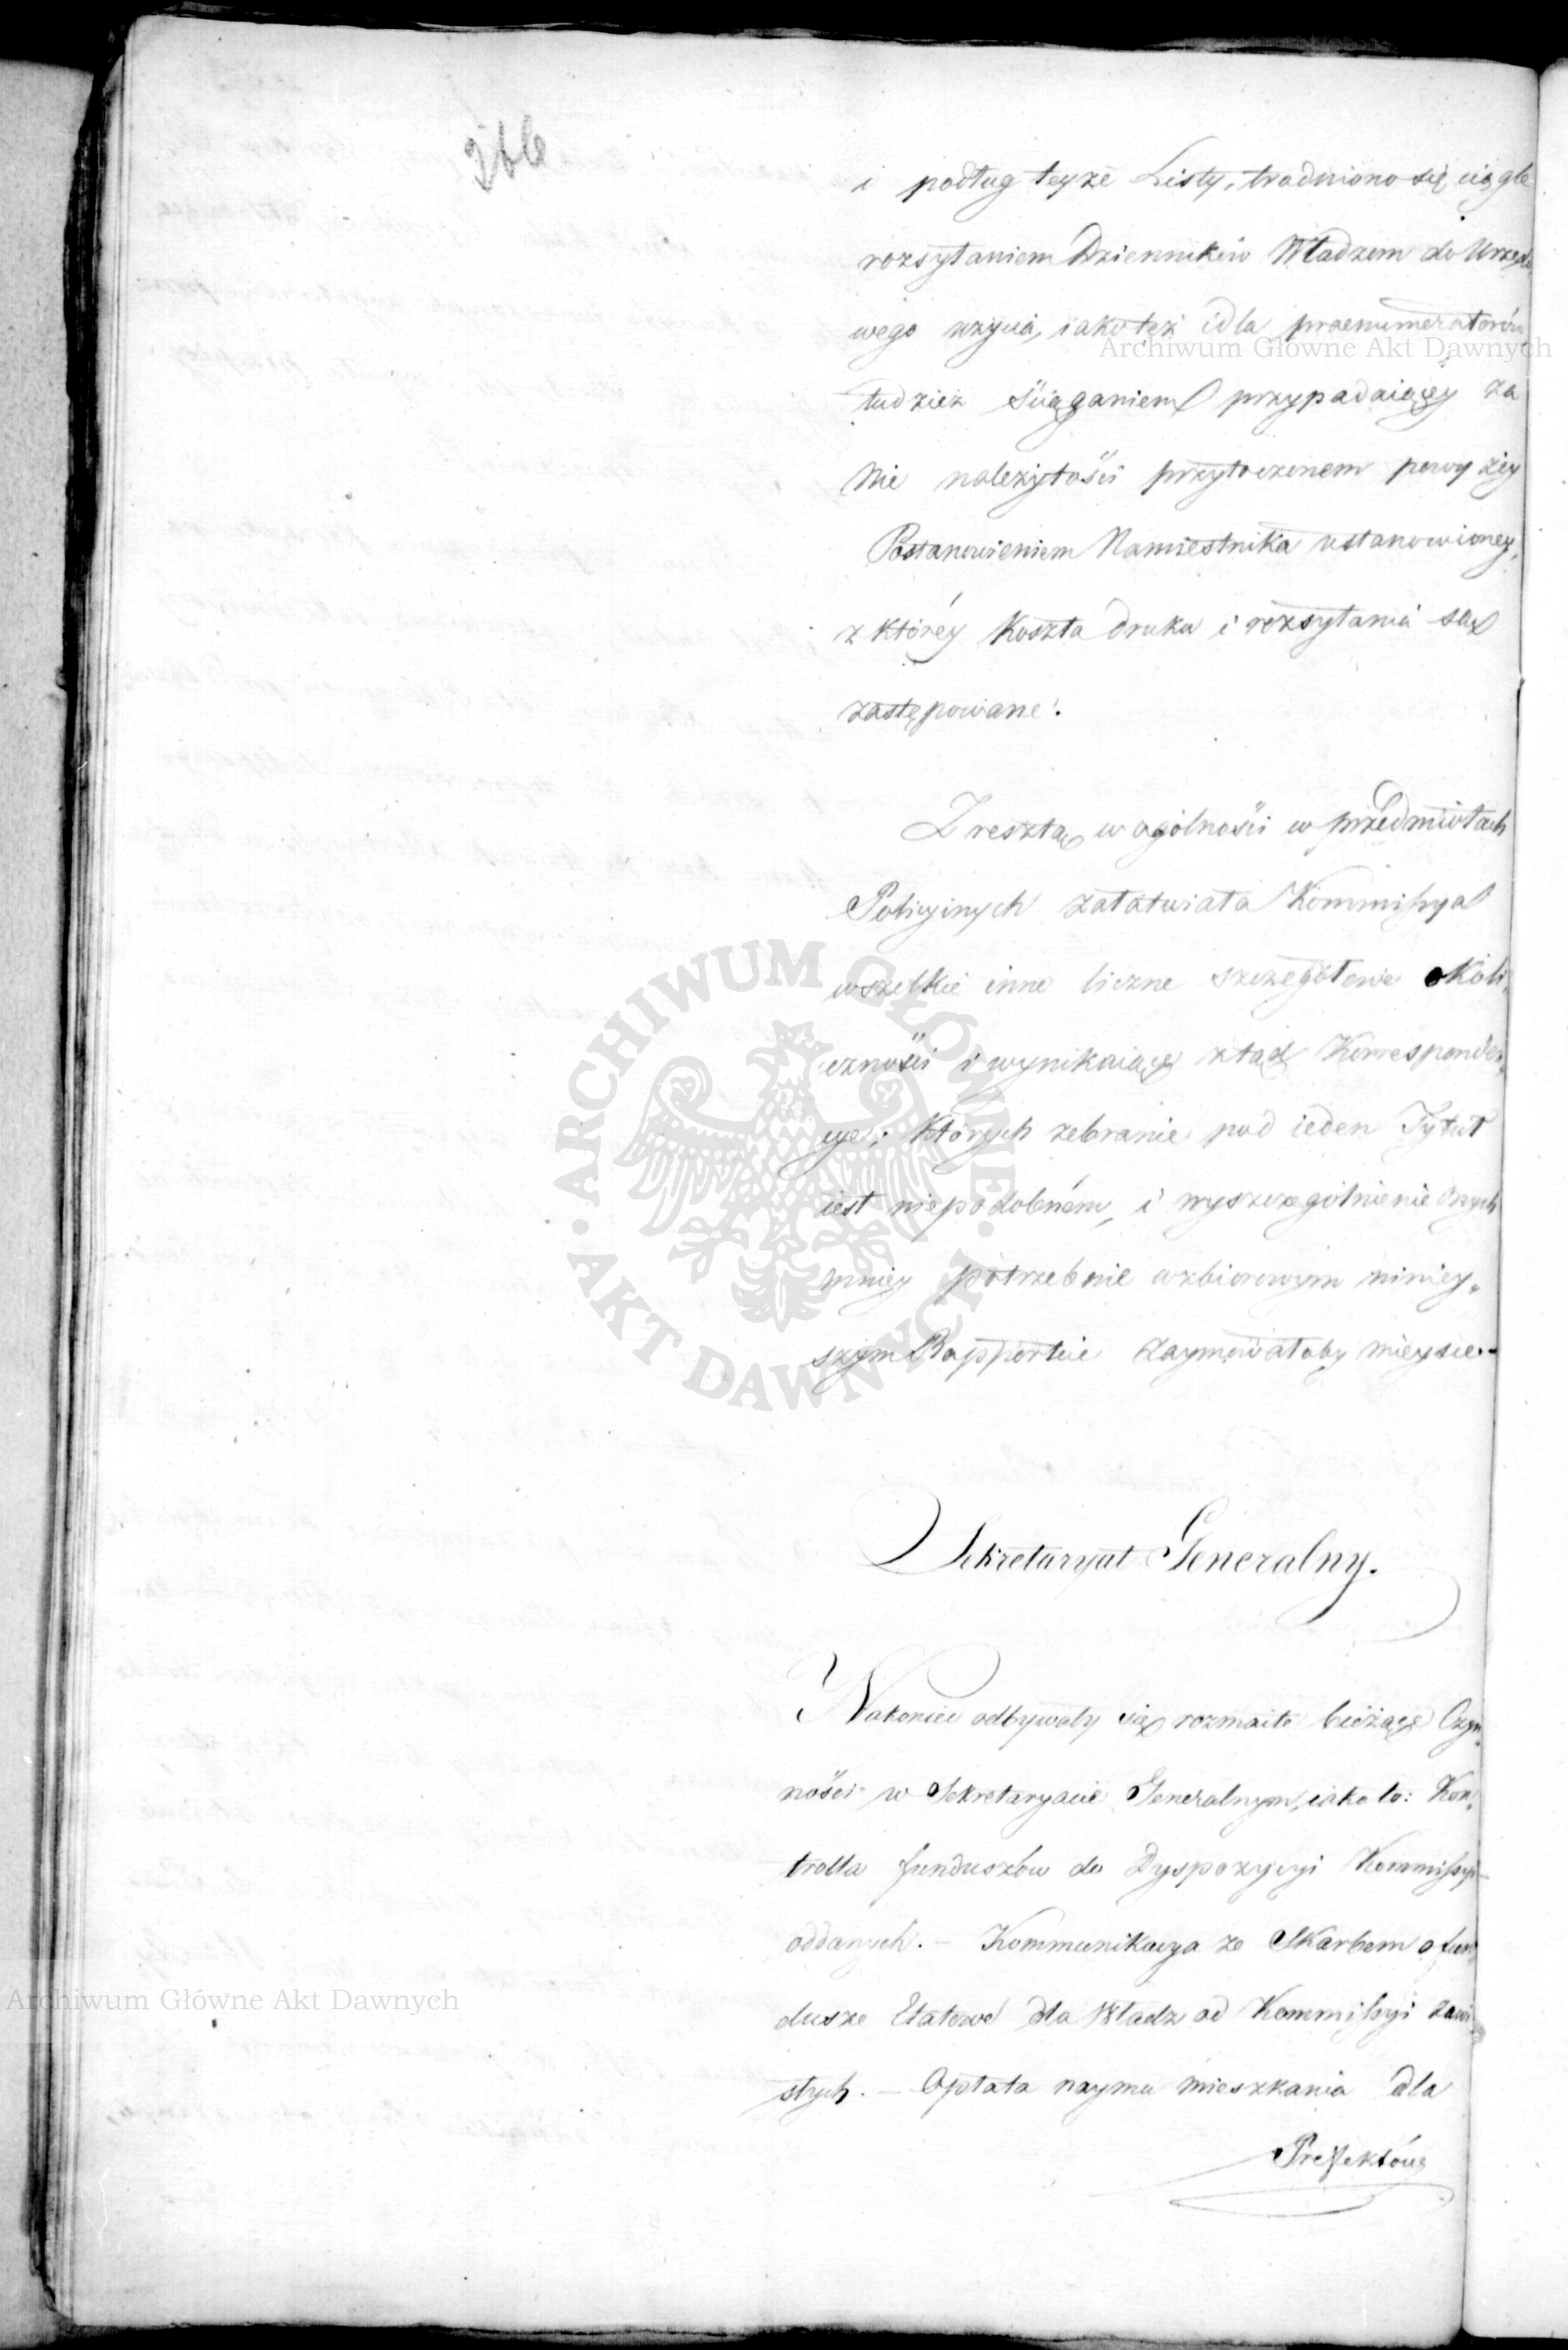 266
i podług teyże Listy, trudniono się ciągle
rozsyłaniem Dzienników Władzom do Urzędo„
wego użycia, iako też i dla praenumeratorów
Archiwum Główne Akt Dawnych
tudzież ściąganiem przypadaiącéy za
nie należytości przytoczonem powyżéy
Postanowieniem Namiestnika ustanowioney,
z któréy Koszta druku i rozsyłania są
zastępowane.
Zresztą w ogólności w przedmiotach
Policyinych załatwiała Kommissya
wszelkie inne liczne szczegółowe okoli„
czności i wynikaiące ztąd Korresponden„
cye; których zebranie pod ieden Tytuł
iest niepodobném, i wyszczególnienie onych
mniey potrzebnie w zbiorowym niniey„
szym Rapporcie zaymowałoby mieysce.
ARCHIWUM GŁÓWNE · AKT DAWNYCH ·
Sekretaryat Generalny.
Nakoniec odbywały się rozmaite bieżące Czyn„
ności w Sekretaryacie Generalnym, iako to: Kon„
trolla funduszów do Dyspozycyi Kommissyi
oddanych. – Kommunikacya ze Skarbem o fun„
dusze Etatowe dla Władz od Kommissyi zawi„
Archiwum Główne Akt Dawnych
słych. – Opłata naymu mieszkania dla
Prefektów